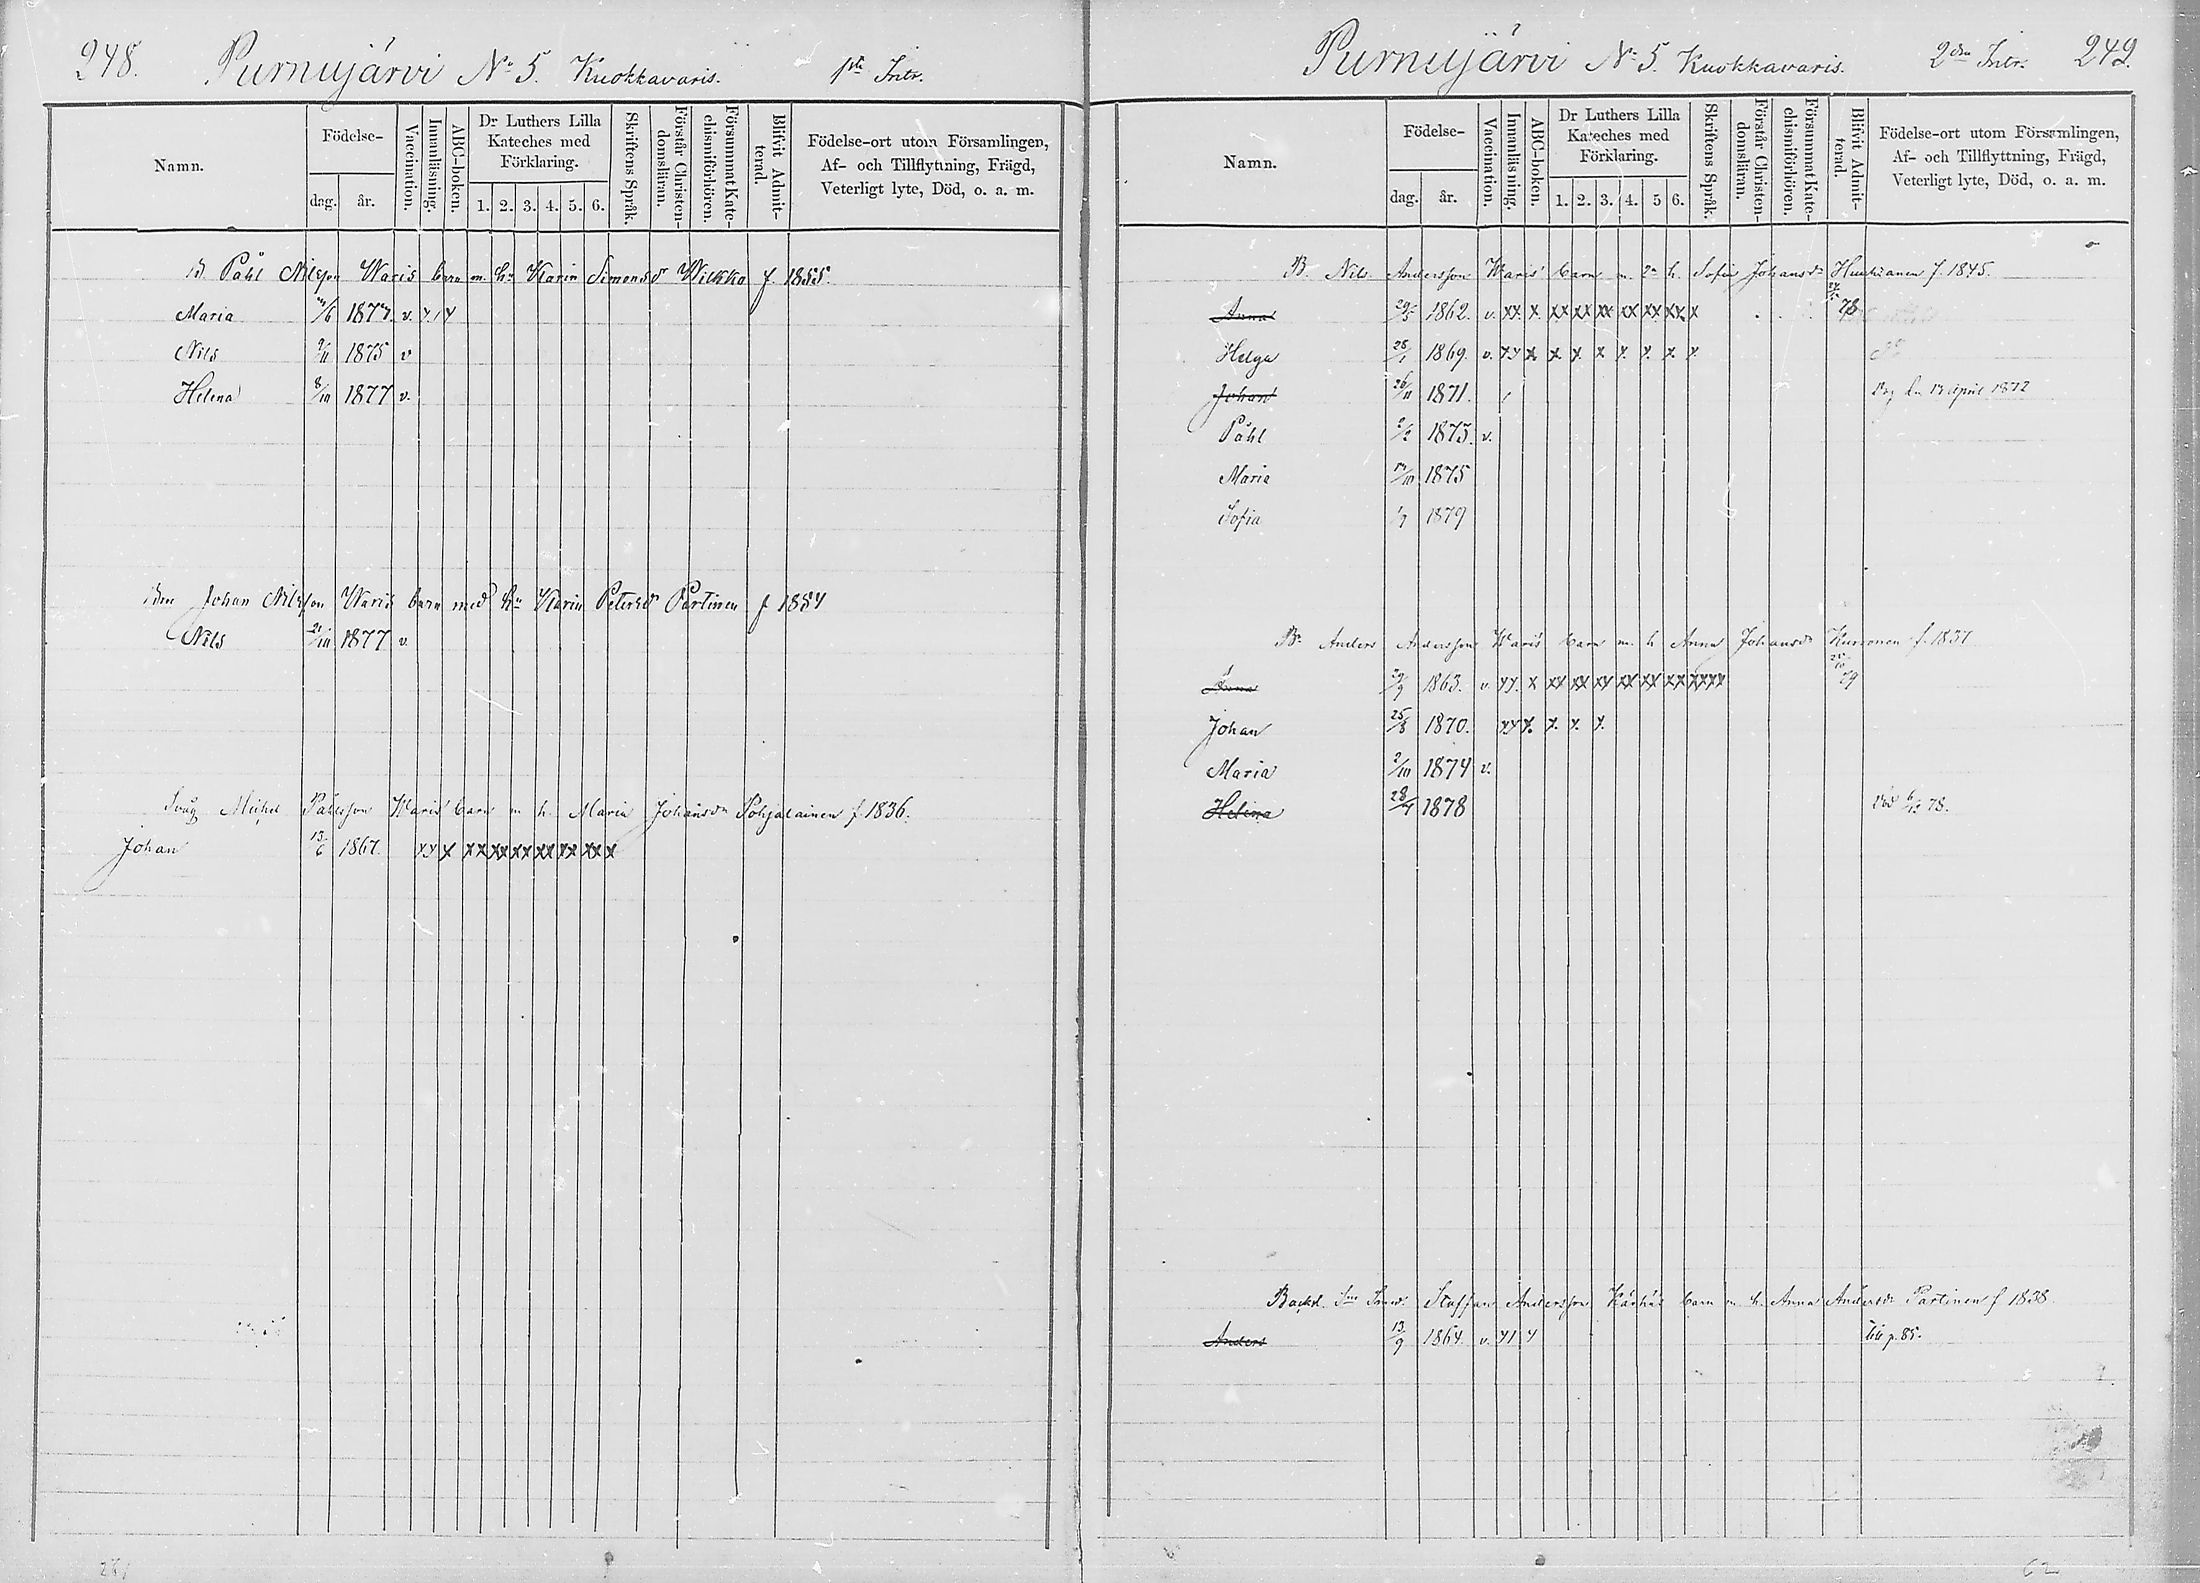 248. Purnujärvi No 5. Kuokkavaris. 1sta Intr.
Namn.
Födelse-
dag. år.
Vaccination.
Innanläsning.
ABC-boken.
Dr Luthers Lilla Kateches med Förklaring.
1. 2. 3. 4. 5. 6.
Skriftens Språk.
Förstår Christen-domsläran.
Försummat Kate-chismiförhören.
Blifvit Admit-terad.
Födelse-ort utom Församlingen, Af- och Tillflyttning, Frägd, Veterligt lyte, Död, o. a. m.
B Påhl Nilsson Waris barn m. hu Karin Simonsdr Wilkko f. 1855.
Maria 1877. v.
Nils 9/11 1875 v
Helena 8/10 1877 v.
Johan Nilsson Waris barn med hu Karin Petersdr Partinen f 1854
Nils 21/10 1877 v.
Svåg Michel Påhlsson Waris barn m h. Maria Johansdr Pohjalainen f. 1836.
Johan 13/6 1867. xx x xx xx xx xx xx xx x
Purnujärvi No 5. Kuokkavaris. 2dra Intr. 249.
Namn.
Födelse-
dag. år.
Vaccination.
Innanläsning.
ABC-boken.
Dr Luthers Lilla Kateches med Förklaring.
1. 2. 3. 4. 5 6.
Skriftens Språk.
Förstår Christen-domsläran.
Försummat Kate-chismiförhören.
Blifvit Admit-terad.
Födelse-ort utom Församlingen, Af- och Tillflyttning, Frägd, Veterligt lyte, Död, o. a. m.
B. Nils Andersson Waris' barn m. 2a h. Sofia Johansdr f. 1845.
Anna 29/5 1862. v. xx x. xx xx xx xx xx xx x 78
Helga 28/1 1869. v. xx x x x x x x x x
Johan 26/11 1871. April 1872
Påhl 1873. v.
Maria 1875
Sofia 1/7 1879
Br Anders Andersson Waris' barn m. h Anna Johansdr Kurronen f. 1837
Anna 1863. v. xx. x xx xx xx xx xx xx xxxx 79
Johan 25/8 1870. xx x. x. x. x.
Maria 2/10 1874 v.
Helena 28/4 1878 död 6/12 78.
Staffan Andersson barn m. h. Anna Andersdr Partinen f 1838.
Anders 13/9 1864. v. p. 85.